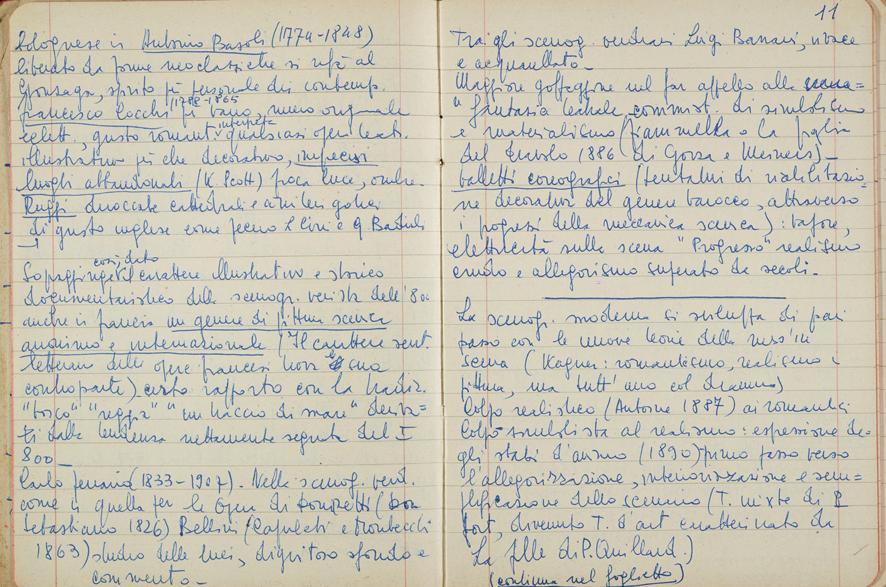 Bolognese in Antonio Basoli (1774-1848)
liberato da forme neoclassiche si rifà al
Gonzaga, spirito più personale dei contemp.
Francesco Cocchi 1788-1865 più vario, meno originale
eclett., gusto romant. interpreta qualsiasi opere teat.
illustrativo più che decorativo, imprecisi
luoghi abbandonati (W. Scott) poca luce, ombre.
Ruggi diroccate cattedrali e archi gotici
di gusto inglese come fecero L. Livi e G. Badiali
così detto
Sopraggiunge il carattere illustrativo e storico
documentaristico delle scenogr. verista dell'800
anche in Francia un genere di pittura scenica
anonimo e internazionale (Il carattere sent.
letterario delle opere francesi trova la sua
controparte) certo rapporto con la tradiz.
"bosco" "reggia" "un braccio di mare" deriva=
ti dalla tendenza nettamente segnata del I
800 -
Carlo Ferrario (1833-1907). Nelle scenog. verd.
come in quella per le opere di Donizetti (Don
Sebastiano 1826) Bellini (Capuleti e Montecchi
1863) studio delle luci, dignitoso sfondo e
commento -
11
Tra gli scenog. verdiani Luigi Bazzani, vivace
e acquarellato -
Maggiore goffaggine nel far appello alla scena=
" fantasia teatrale commist. di simbolismo
e materialismo (Fiammella o la figlia
del diavolo 1886 di Gorza e Meiners) -
balletti coreografici (tentativi di riabilitazio=
ne decorativi del genere barocco, attraverso
i progressi della meccanica scenica): vapore,
elettricità sulla scena "Progresso" realismo
crudo e allegorismo superato da secoli -
La scenog. moderna si sviluppa di pari
passo con le nuove teorie della mess'in
scena (Wagner: romanticismo, realismo in
pittura, ma tutt'uno col dramma)
Colpo realistico (Antoine 1887) ai romantici
Colpo simbolista al realismo: espressione de=
gli stati d'animo (1890) primo passo verso
l'allegorizzazione, interiorizzazione e sem=
plificazione dello scenario (T. mixte di P.
Fort, divenuto T. d'art caratterizzato da
La fille di P. Quillard.)
(continua nel foglietto)